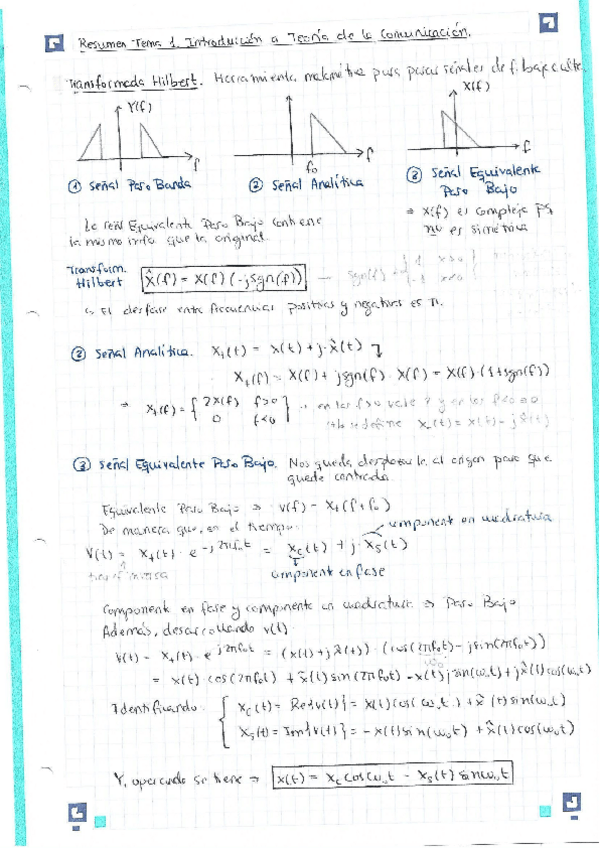 Resumen Tema 1. Introducción a Teoría de la Comunicación.
Transformada Hilbert. Herramienta matemática para pasar señales de f. baja a alta.
Y(f)
X(f)
f
f₀
f
f
① Señal Paso Banda
② Señal Analítica
③ Señal Equivalente
Paso Bajo
⇒ X(f) es compleja pq
no es simétrica
La señal Equivalente Paso Bajo contiene
la misma info que la original.
Transform.
Hilbert
X̂(f) = X(f) (-jsgn(f))
sgn(f) = { 1 x>0
-1 x<0
↳ El desfase entre frecuencias positivas y negativas es π.
② Señal Analítica. X₊(t) = x(t) + j·x̂(t)
X₊(f) = X(f) + jsgn(f) · X(f) = X(f)·(1+sgn(f))
⇒ X₊(f) = { 2X(f) f>0
0 f<0 }
en las f>0 vale 2 y en las f<0 = 0
se define x₋(t) = x(t) - j
③ Señal Equivalente Paso Bajo. Nos queda desplazarla al origen para que
quede centrada.
Equivalente Paso Bajo ⇒ V(f) = X₊(f+f₀)
De manera que, en el tiempo:
componente en cuadratura
V(t) = X₊(t) · e^-j2πf₀t = Xc(t) + j·Xs(t)
inversa
componente en fase
Componente en fase y componente en cuadratura ⇒ Paso Bajo
Además, desarrollando v(t).
V(t) = X₊(t) · e^j2πf₀t = (x(t)+jx̂(t)) · (cos(2πf₀t) - jsin(2πf₀t))
w₀
= x(t) · cos(2πf₀t) + x̂(t) sin(2πf₀t) - x(t) j sin(w₀t) + jx̂(t) cos(w₀t)
Identificando: { Xc(t) = Re{v(t)} = x(t) cos(w₀t) + x̂(t) sin(w₀t)
Xs(t) = Im{v(t)} = -x(t) sin(w₀t) + x̂(t) cos(w₀t)
Y, operando se tiene ⇒ x(t) = xc cos w₀t - xs(t) sin w₀t